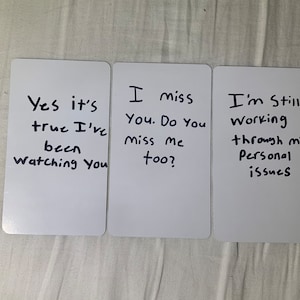 Yes it's
true I've
been
watching you
I miss
you. Do you
miss me
too?
I'm Still
working
through m
Personal
issues